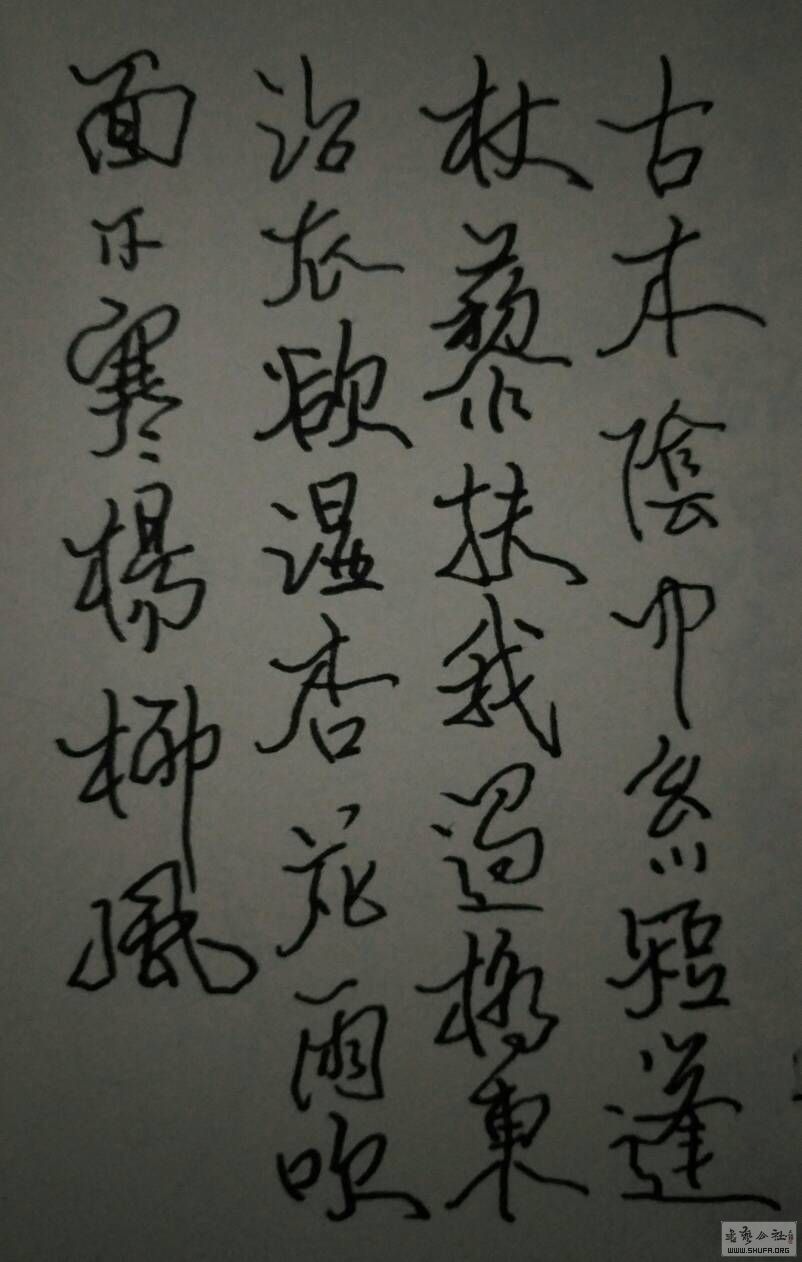 古木陰中系短蓬
杖藜扶我過橋東
沾衣欲濕杏花雨吹
面不寒楊柳風
书艺公社
WWW.SHUFA.ORG